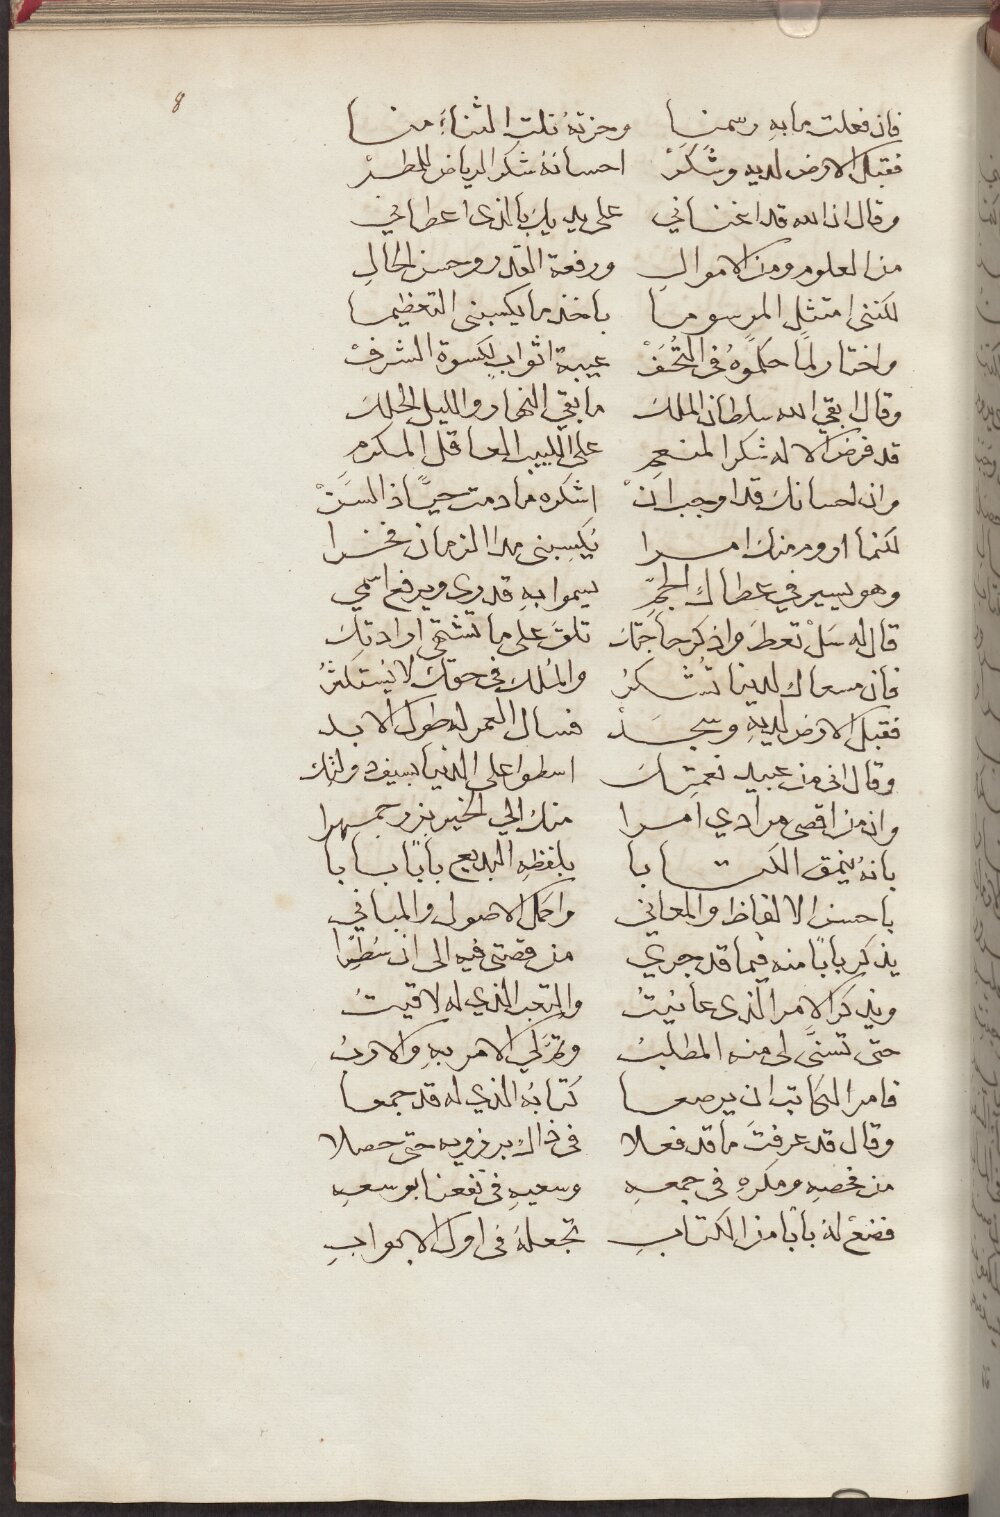 8
فان فعلت ما به رسمنا وحزته نلت الثناء منا
فقبل الارض لديه وشكر احسانه شكر الرياض للمطر
وقال ان الله قد اغناني على يديك بالذي اعطاني
من العلوم ومن الاموال ورفعة القدر وحسن الحال
لكنني امتثل المرسوما باخذ ما يكسبني التعظيما
واختار لما حكموه في التحف عيبة اثواب لكسوة الشرف
وقال ابقي الله سلطان الملك ما بقي النهار والليل الحلك
قد فرض الاله شكر المنعم على اللبيب العاقل المكرم
وان احسانك قد اوجب ان اشكره ما دمت حيا ذا السنن
لكنما اروم منك امرا يكسبني مدا الزمان فخرا
وهو يسير في عطاك الجم يسموا به قدري ويرفع اسمي
قال له سل تعط واذكر حاجتك تلق على ما تشتهي ارادتك
فان مسعاك لدينا تشكر والملك في حقك لا يستكثر
فقبل الارض لديه وسجد فسال العمر له طول الابد
وقال اني من عبيد نعمتك اسطوا على الدنيا بسيف دولتك
وان من اقصى مرادي امرا منك الي الخير بزرجمهرا
بانه ينمق الكتابا بلفظه البديع بابا بابا
باحسن الالفاظ والمعاني واكمل الاصول والمباني
يذكر بابا منه فيما قد جري من قصتي فيه الى ان سطرا
ويذكر الامر الذي عانيت والتعب الذي له لاقيت
حتى تسنى لى منه المطلب وتم لي الامر به والارب
فامر الكاتب ان يرصعا كتابه الذي له قد جمعا
وقال قد عرفت ما قد فعلا في ذاك برزويه حتى حصلا
من فحصه ومكره في جمعه وسعيه في نفعنا بوسعه
فضع له بابا من الكتاب تجعله في اول الابواب